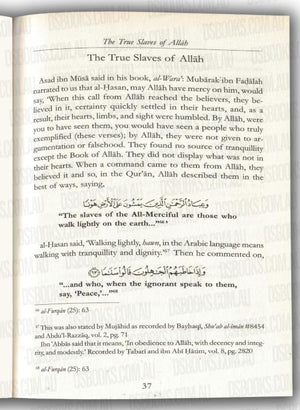 The True Slaves of Allāh
The True Slaves of Allāh
Asad ibn Mūsā said in his book, al-Wara‘: Mubārak ibn Faḍālah
narrated to us that al-Ḥasan, may Allāh have mercy on him, would
say, ‘When this call from Allāh reached the believers, they be-
lieved in it, certainty quickly settled in their hearts, and, as a
result, their hearts, limbs, and sight were humbled. By Allāh, were
you to have seen them, you would have seen a people who truly
exemplified (these verses); by Allāh, they were not given to ar-
gumentation or falsehood. They found no source of tranquility
except the Book of Allāh. They did not display what was not in
their hearts. When a command came to them from Allāh, they
believed it and so, in the Qur’ān, Allāh described them in the
best of ways, saying,
وَعِبَادُ ٱلرَّحْمَٰنِ ٱلَّذِينَ يَمْشُونَ عَلَى ٱلْأَرْضِ هَوْنًا
“The slaves of the All-Merciful are those who
walk lightly on the earth...”
al-Ḥasan said, ‘Walking lightly, hawn, in the Arabic language means
walking with tranquility and dignity.’ Then he commented on,
وَإِذَا خَاطَبَهُمُ ٱلْجَٰهِلُونَ قَالُوا۟ سَلَٰمًا
“...and who, when the ignorant speak to them,
say, ‘Peace,’...”
al-Furqān (25): 63
This was also stated by Mujāhid as recorded by Bayhaqī, Shu‘ab al-īmān #8454
and Abdu’l-Razzāq, vol. 2, pg. 71
Ibn ‘Abbās said that it means, ‘In obedience to Allāh, with decency and integ-
rity, and modestly.’ Recorded by Ṭabarī and ibn Abī Ḥātim, vol. 8, pg. 2820
al-Furqān (25): 63
37
DSBOOKS.COM.AU